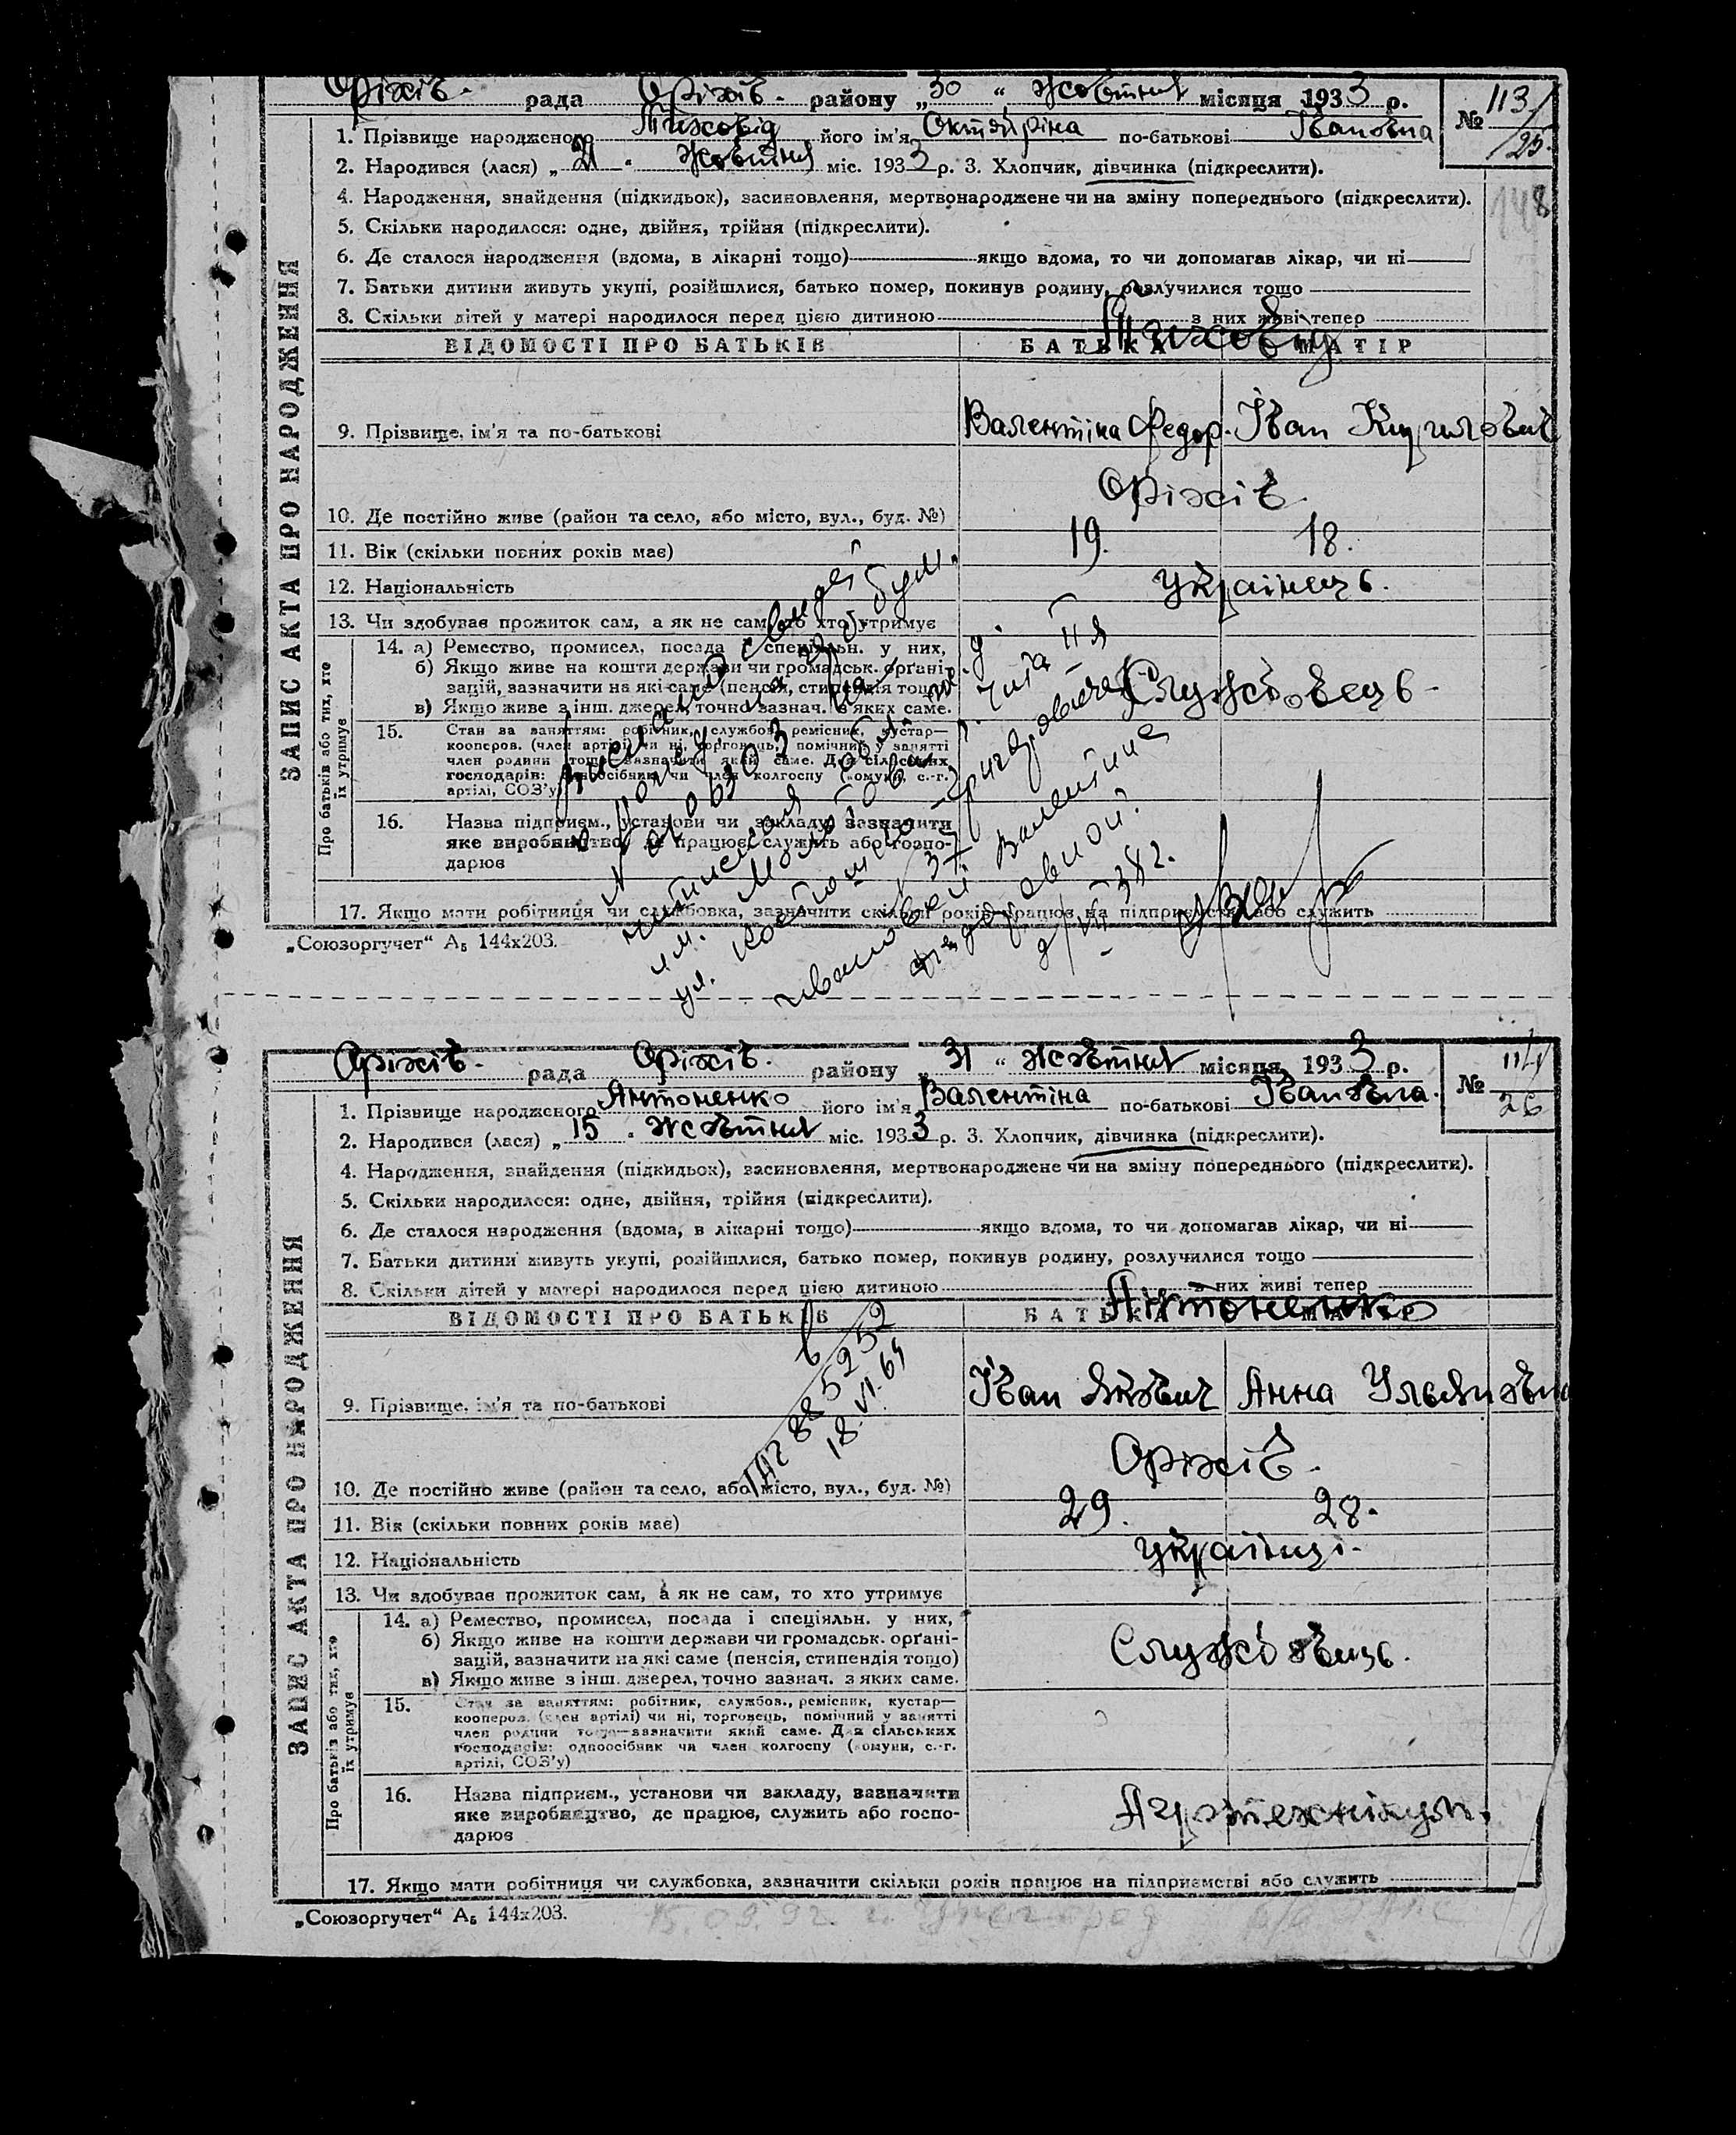 Оріхів. рада Оріхів. району „30“ Жовтня місяця 1933 р.
№ 113/25.
1. Прізвище народженого Тиховід його ім'я Октябріна по-батькові Івановна
2. Народився (лася) „21“ Жовтня міс. 1933 р. 3. Хлопчик, дівчинка (підкреслити).
4. Народження, знайдення (підкидьок), засиновлення, мертвонароджене чи на зміну попереднього (підкреслити).
148
5. Скільки народилося: одне, двійня, трійня (підкреслити).
6. Де сталося народження (вдома, в лікарні тощо) якщо вдома, то чи допомагав лікар, чи ні
7. Батьки дитини живуть укупі, розійшлися, батько помер, покинув родину, розлучилися тощо
8. Скільки дітей у матері народилося перед цією дитиною з них живі тепер
Тиховід
ЗАПИС АКТА ПРО НАРОДЖЕННЯ
ВІДОМОСТІ ПРО БАТЬКІВ БАТЬКА МАТІР
9. Прізвище, ім'я та по-батькові Валентіна Федор. Іван Кирилович
10. Де постійно живе (район та село, або місто, вул., буд. №) Оріхів.
11. Вік (скільки повних років має) 19. 18.
12. Національність Українець.
13. Чи здобуває прожиток сам, а як не сам, то хто утримує
Про батьків або тих, хто їх утримує
14. а) Ремество, промисел, посада і спеціяльн. у них,
б) Якщо живе на кошти держави чи громадськ. орґані-
зацій, зазначити на які саме (пенсія, стипендія тощо)
в) Якщо живе з інш. джерел, точно зазнач. з яких саме.
Службовець.
15. Стан за заняттям: робітник, службов., ремісник, кустар—
кооперов. (член артілі) чи ні, торговець, помічник у занятті
член родини тощо—зазначити який саме. Для сільських
господарів: одноосібник чи член колгоспу (комуни, с.-г.
артілі, СОЗ'у)
16. Назва підприєм., установи чи закладу, зазначити
яке виробництво, де працює, служить або госпо-
дарює
17. Якщо мати робітниця чи службовка, зазначити скільки років працює на підприємстві або служить
ул.
Валентине
„Союзоргучет“ А₅ 144х203.
Оріхів. рада Оріхів. району „31“ Жовтня місяця 1933 р.
№ 114/26
1. Прізвище народженого Антоненко його ім'я Валентіна по-батькові Івановна.
2. Народився (лася) „15“ Жовтня міс. 1933 р. 3. Хлопчик, дівчинка (підкреслити).
4. Народження, знайдення (підкидьок), засиновлення, мертвонароджене чи на зміну попереднього (підкреслити).
5. Скільки народилося: одне, двійня, трійня (підкреслити).
6. Де сталося народження (вдома, в лікарні тощо) якщо вдома, то чи допомагав лікар, чи ні
7. Батьки дитини живуть укупі, розійшлися, батько помер, покинув родину, розлучилися тощо
8. Скільки дітей у матері народилося перед цією дитиною з них живі тепер
Антоненко
ЗАПИС АКТА ПРО НАРОДЖЕННЯ
ВІДОМОСТІ ПРО БАТЬКІВ БАТЬКА МАТІР
18.VI.64
9. Прізвище, ім'я та по-батькові Іван Якович Анна Ульяновна
10. Де постійно живе (район та село, або місто, вул., буд. №) Оріхів.
11. Вік (скільки повних років має) 29. 28.
12. Національність Українці.
13. Чи здобуває прожиток сам, а як не сам, то хто утримує
Про батьків або тих, хто їх утримує
14. а) Ремество, промисел, посада і спеціяльн. у них,
б) Якщо живе на кошти держави чи громадськ. орґані-
зацій, зазначити на які саме (пенсія, стипендія тощо)
в) Якщо живе з інш. джерел, точно зазнач. з яких саме.
Службовець.
15. Стан за заняттям: робітник, службов., ремісник, кустар—
кооперов. (член артілі) чи ні, торговець, помічний у занятті
член родини тощо—зазначити який саме. Для сільських
господарів: одноосібник чи член колгоспу (комуни, с.-г.
артілі, СОЗ'у)
16. Назва підприєм., установи чи закладу, зазначити
яке виробництво, де працює, служить або госпо-
дарює
Агротехнікум.
17. Якщо мати робітниця чи службовка, зазначити скільки років працює на підприємстві або служить
„Союзоргучет“ А₅ 144х203.
15.09.92.